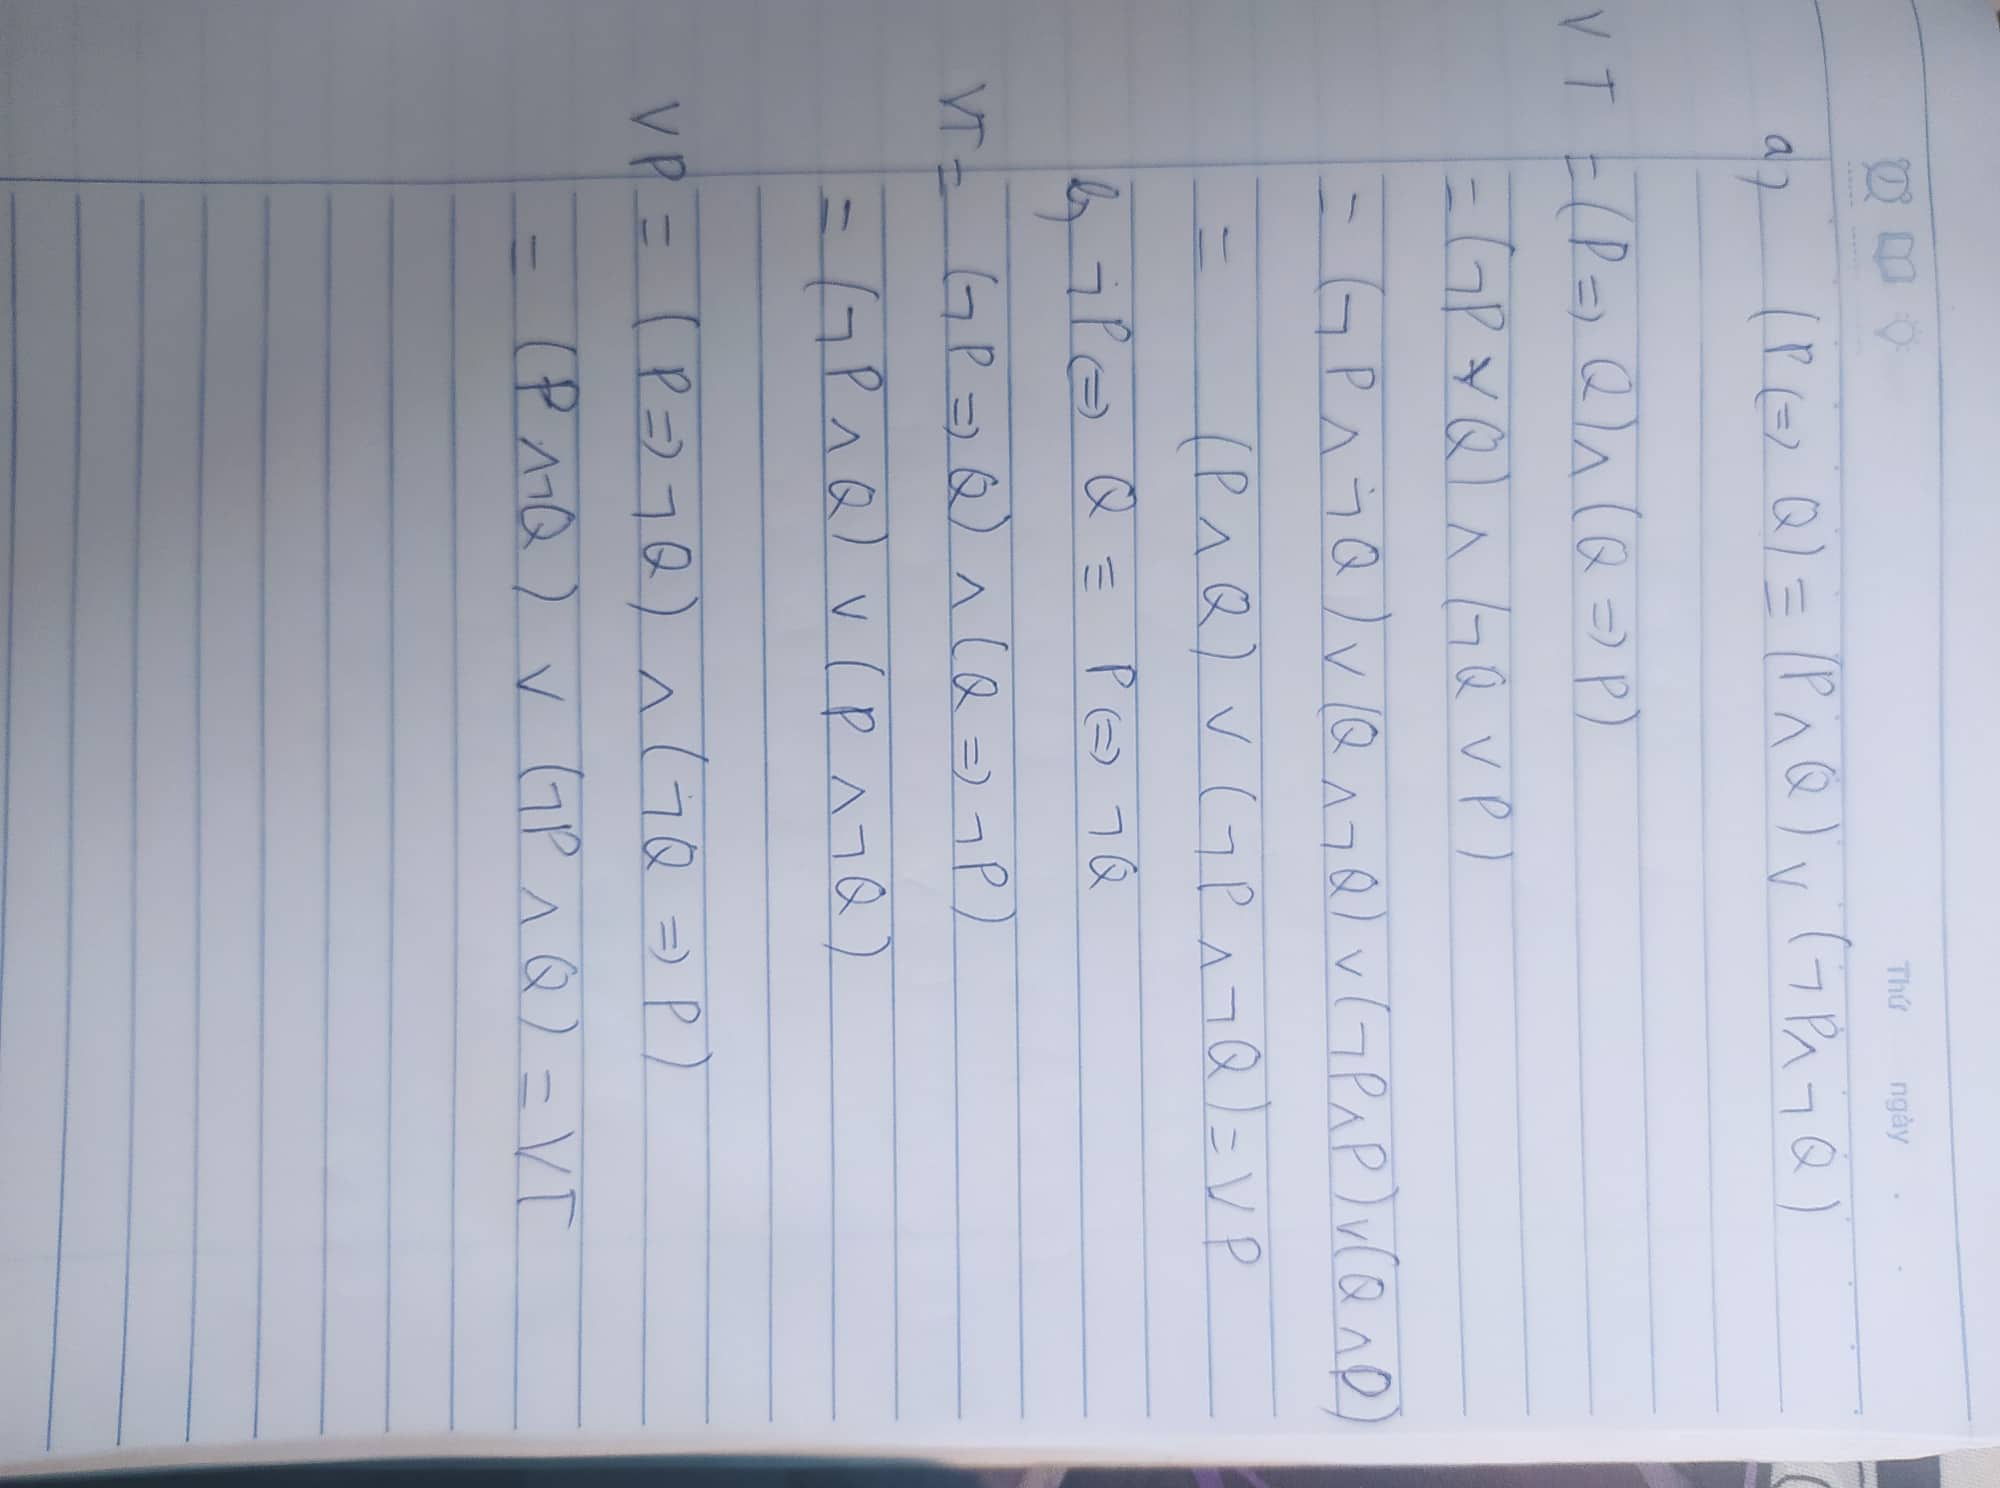 Thứ ngày
a, (P <=> Q) ≡ (P ∧ Q) ∨ (¬P ∧ ¬Q)
VT = (P => Q) ∧ (Q => P)
= (¬P ∨ Q) ∧ (¬Q ∨ P)
= (¬P ∧ ¬Q) ∨ (Q ∧ ¬Q) ∨ (¬P ∧ P) ∨ (Q ∧ P)
= (P ∧ Q) ∨ (¬P ∧ ¬Q) = VP
b, ¬P <=> Q ≡ P <=> ¬Q
VT = (¬P => Q) ∧ (Q => ¬P)
= (¬P ∧ Q) ∨ (P ∧ ¬Q)
VP = (P => ¬Q) ∧ (¬Q => P)
= (P ∧ ¬Q) ∨ (¬P ∧ Q) = VT